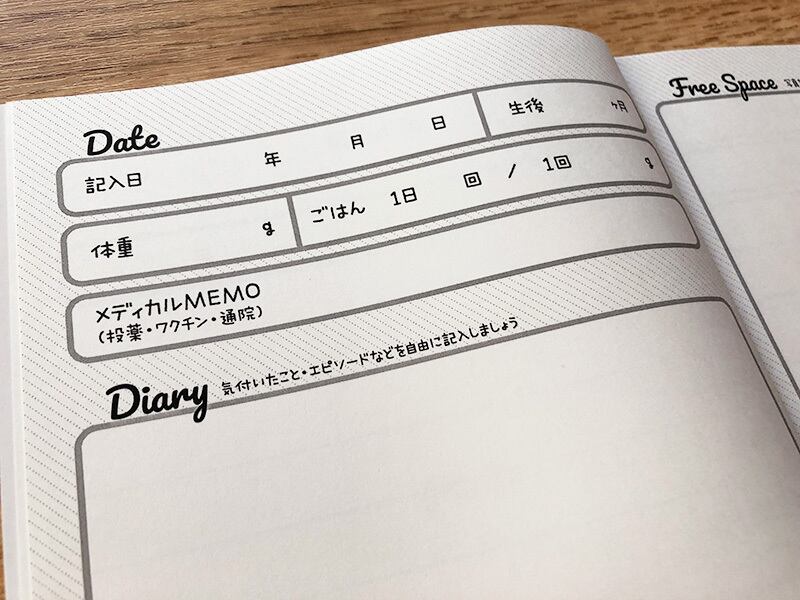 Date
記入日 年 月 日 生後 ヶ月
体重 g ごはん 1日 回 / 1回 g
メディカルMEMO
(投薬・ワクチン・通院)
Diary 気付いたこと・エピソードなどを自由に記入しましょう
Free Space